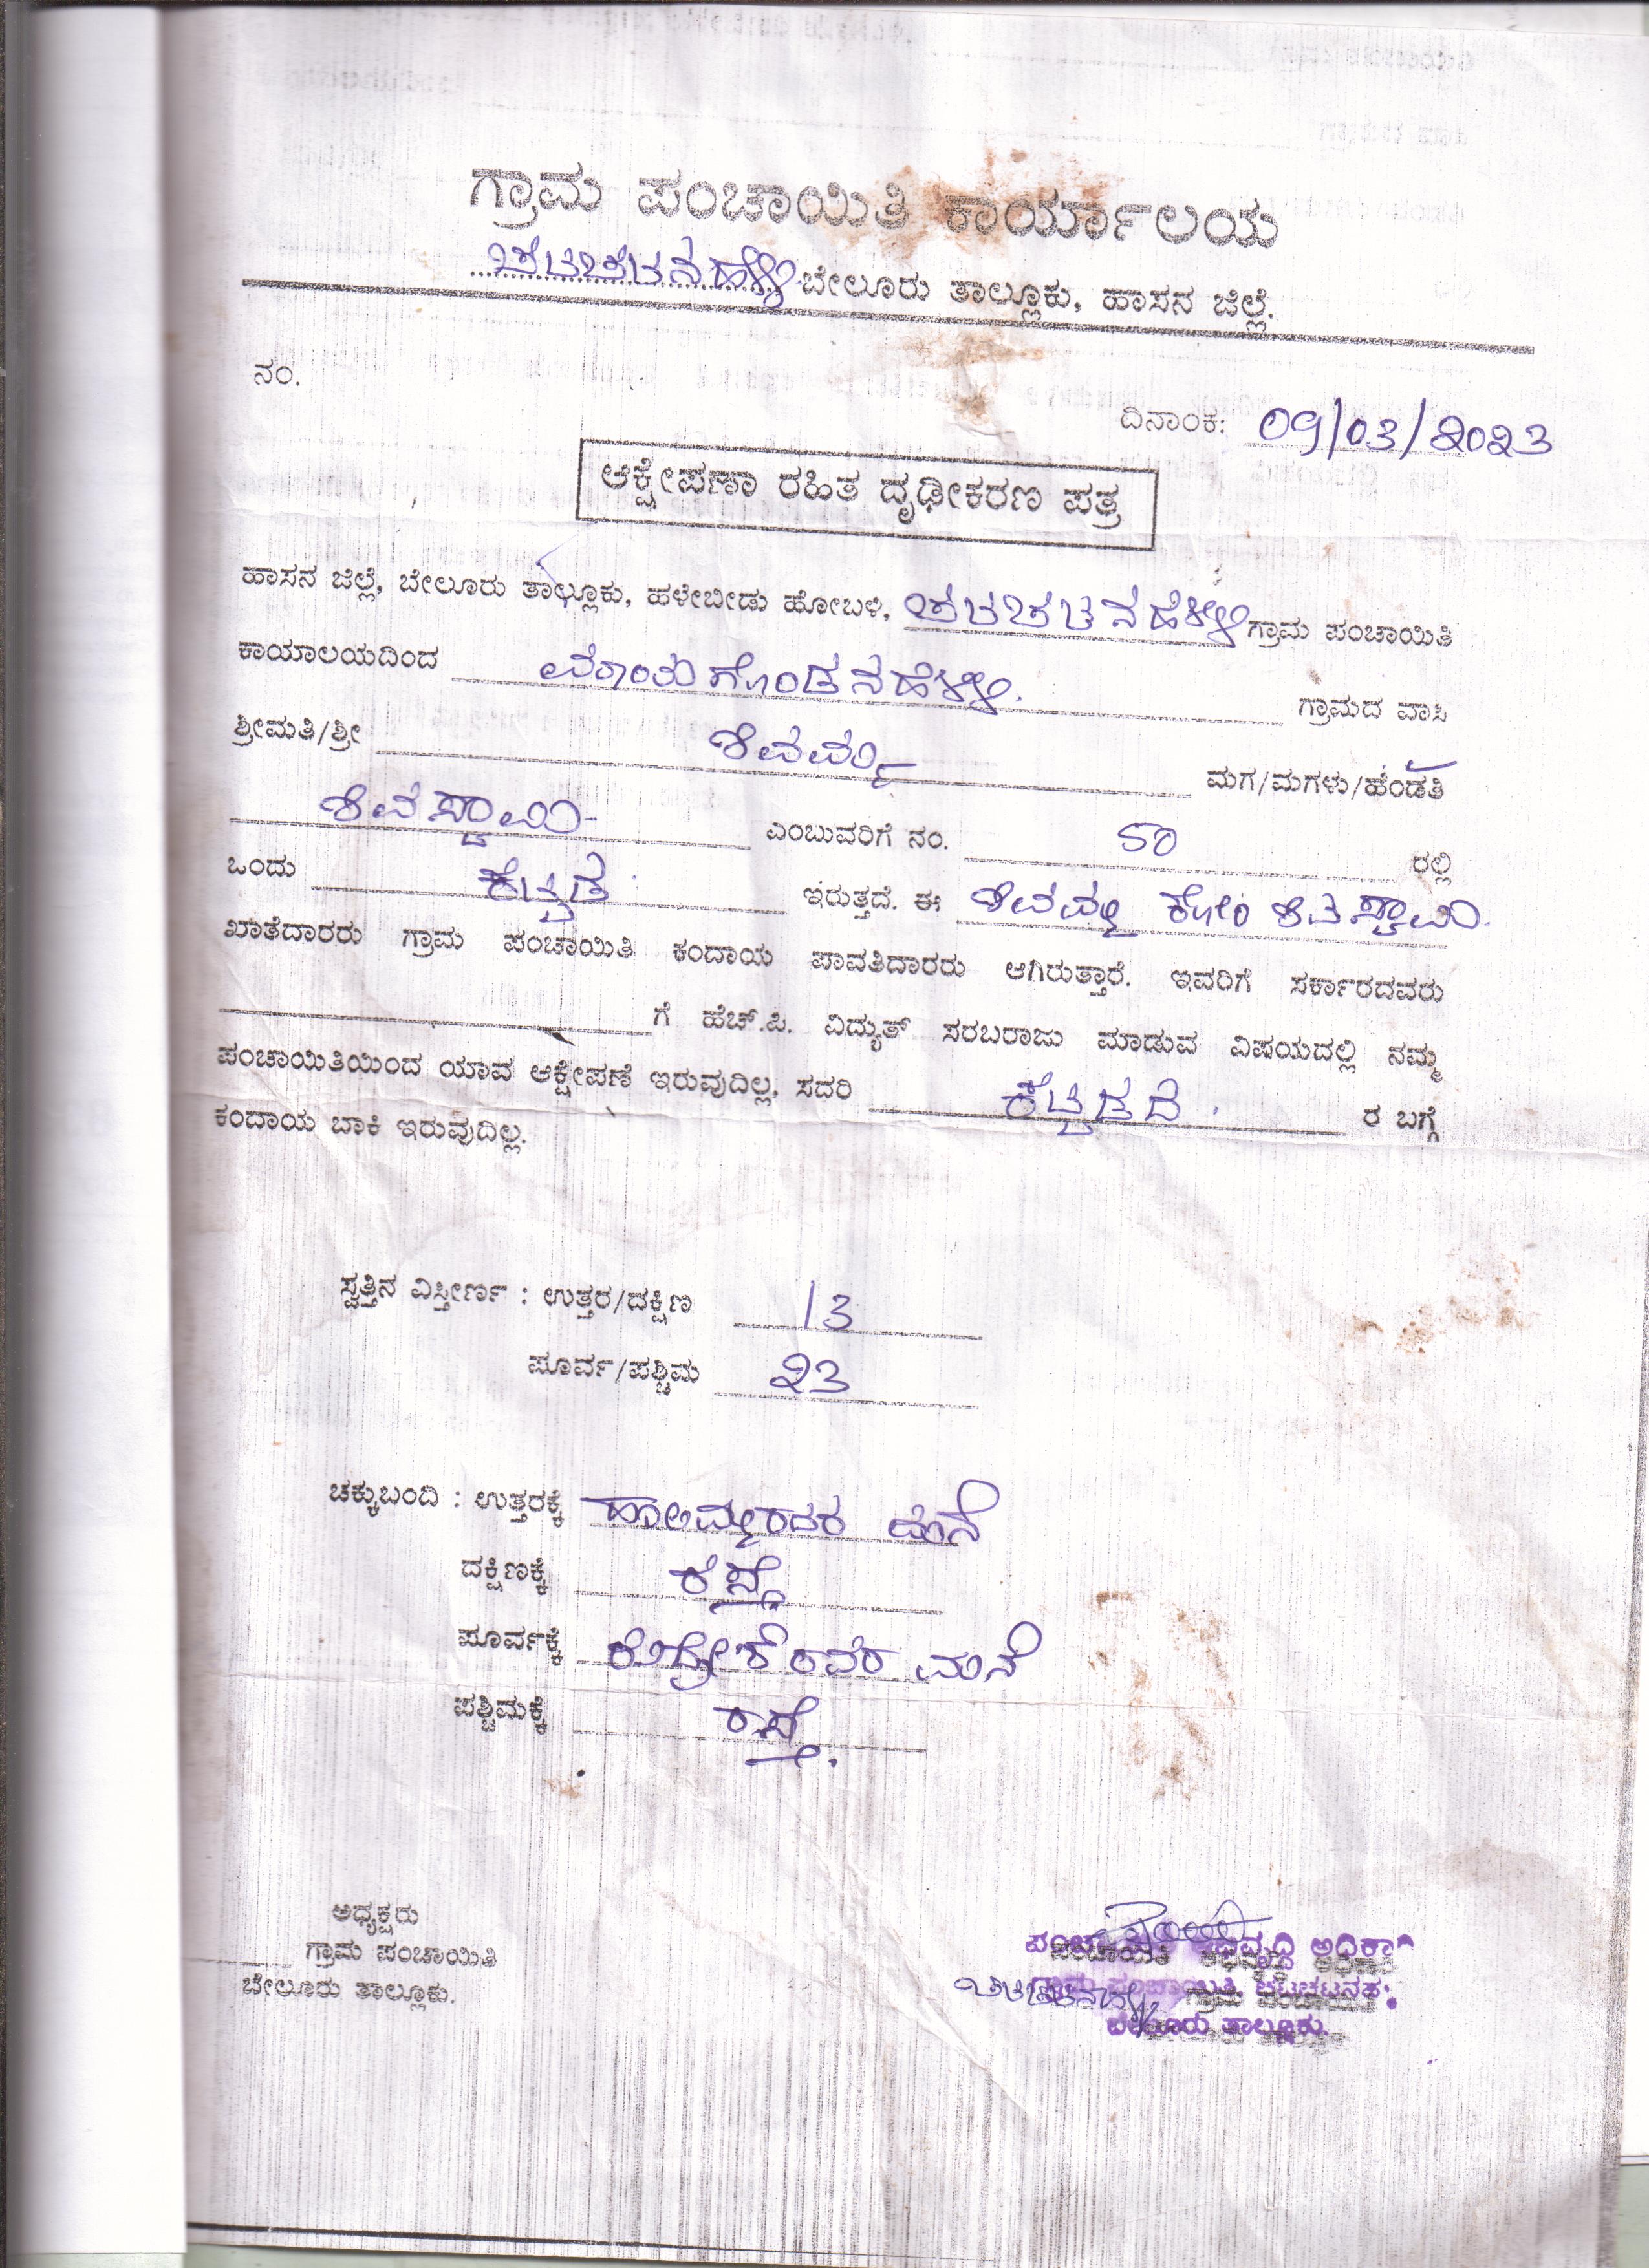 ಗ್ರಾಮ ಪಂಚಾಯಿತಿ ಕಾರ್ಯಾಲಯ
ಚಟಚಟನಹಳ್ಳಿ ಬೇಲೂರು ತಾಲ್ಲೂಕು, ಹಾಸನ ಜಿಲ್ಲೆ.
ನಂ.
ದಿನಾಂಕ: 09/03/2023
ಆಕ್ಷೇಪಣಾ ರಹಿತ ದೃಢೀಕರಣ ಪತ್ರ
ಹಾಸನ ಜಿಲ್ಲೆ, ಬೇಲೂರು ತಾಲ್ಲೂಕು, ಹಳೇಬೀಡು ಹೋಬಳಿ, ಚಟಚಟನಹಳ್ಳಿ ಗ್ರಾಮ ಪಂಚಾಯಿತಿ
ಕಾಯಾಲಯದಿಂದ ಮಾಯಗೊಂಡನಹಳ್ಳಿ. ಗ್ರಾಮದ ವಾಸಿ
ಶ್ರೀಮತಿ/ಶ್ರೀ ಶಿವಮ್ಮ ಮಗ/ಮಗಳು/ಹೆಂಡತಿ
ಶಿವಸ್ವಾಮಿ ಎಂಬುವರಿಗೆ ನಂ. 50 ರಲ್ಲಿ
ಒಂದು ಕಟ್ಟಡ ಇರುತ್ತದೆ. ಈ ಶಿವಮ್ಮ ಕೋಂ ಶಿವಸ್ವಾಮಿ.
ಖಾತೆದಾರರು ಗ್ರಾಮ ಪಂಚಾಯಿತಿ ಕಂದಾಯ ಪಾವತಿದಾರರು ಆಗಿರುತ್ತಾರೆ. ಇವರಿಗೆ ಸರ್ಕಾರದವರು
ಗೆ ಹೆಚ್.ಪಿ. ವಿದ್ಯುತ್ ಸರಬರಾಜು ಮಾಡುವ ವಿಷಯದಲ್ಲಿ ನಮ್ಮ
ಪಂಚಾಯಿತಿಯಿಂದ ಯಾವ ಆಕ್ಷೇಪಣೆ ಇರುವುದಿಲ್ಲ, ಸದರಿ ಕಟ್ಟಡದ. ರ ಬಗ್ಗೆ
ಕಂದಾಯ ಬಾಕಿ ಇರುವುದಿಲ್ಲ.
ಸ್ವತ್ತಿನ ವಿಸ್ತೀರ್ಣ : ಉತ್ತರ/ದಕ್ಷಿಣ 13
ಪೂರ್ವ/ಪಶ್ಚಿಮ 23
ಚಕ್ಕುಬಂದಿ : ಉತ್ತರಕ್ಕೆ ಮನೆ
ದಕ್ಷಿಣಕ್ಕೆ ರಸ್ತೆ
ಪೂರ್ವಕ್ಕೆ ಮನೆ
ಪಶ್ಚಿಮಕ್ಕೆ ರಸ್ತೆ.
ಅಧ್ಯಕ್ಷರು
ಗ್ರಾಮ ಪಂಚಾಯಿತಿ
ಬೇಲೂರು ತಾಲ್ಲೂಕು.
ಅಭಿವೃದ್ಧಿ ಅಧಿಕಾರಿ
ಗ್ರಾಮ ಪಂಚಾಯಿತಿ, ಚಟಚಟನಹಳ್ಳಿ
ಬೇಲೂರು ತಾಲ್ಲೂಕು.